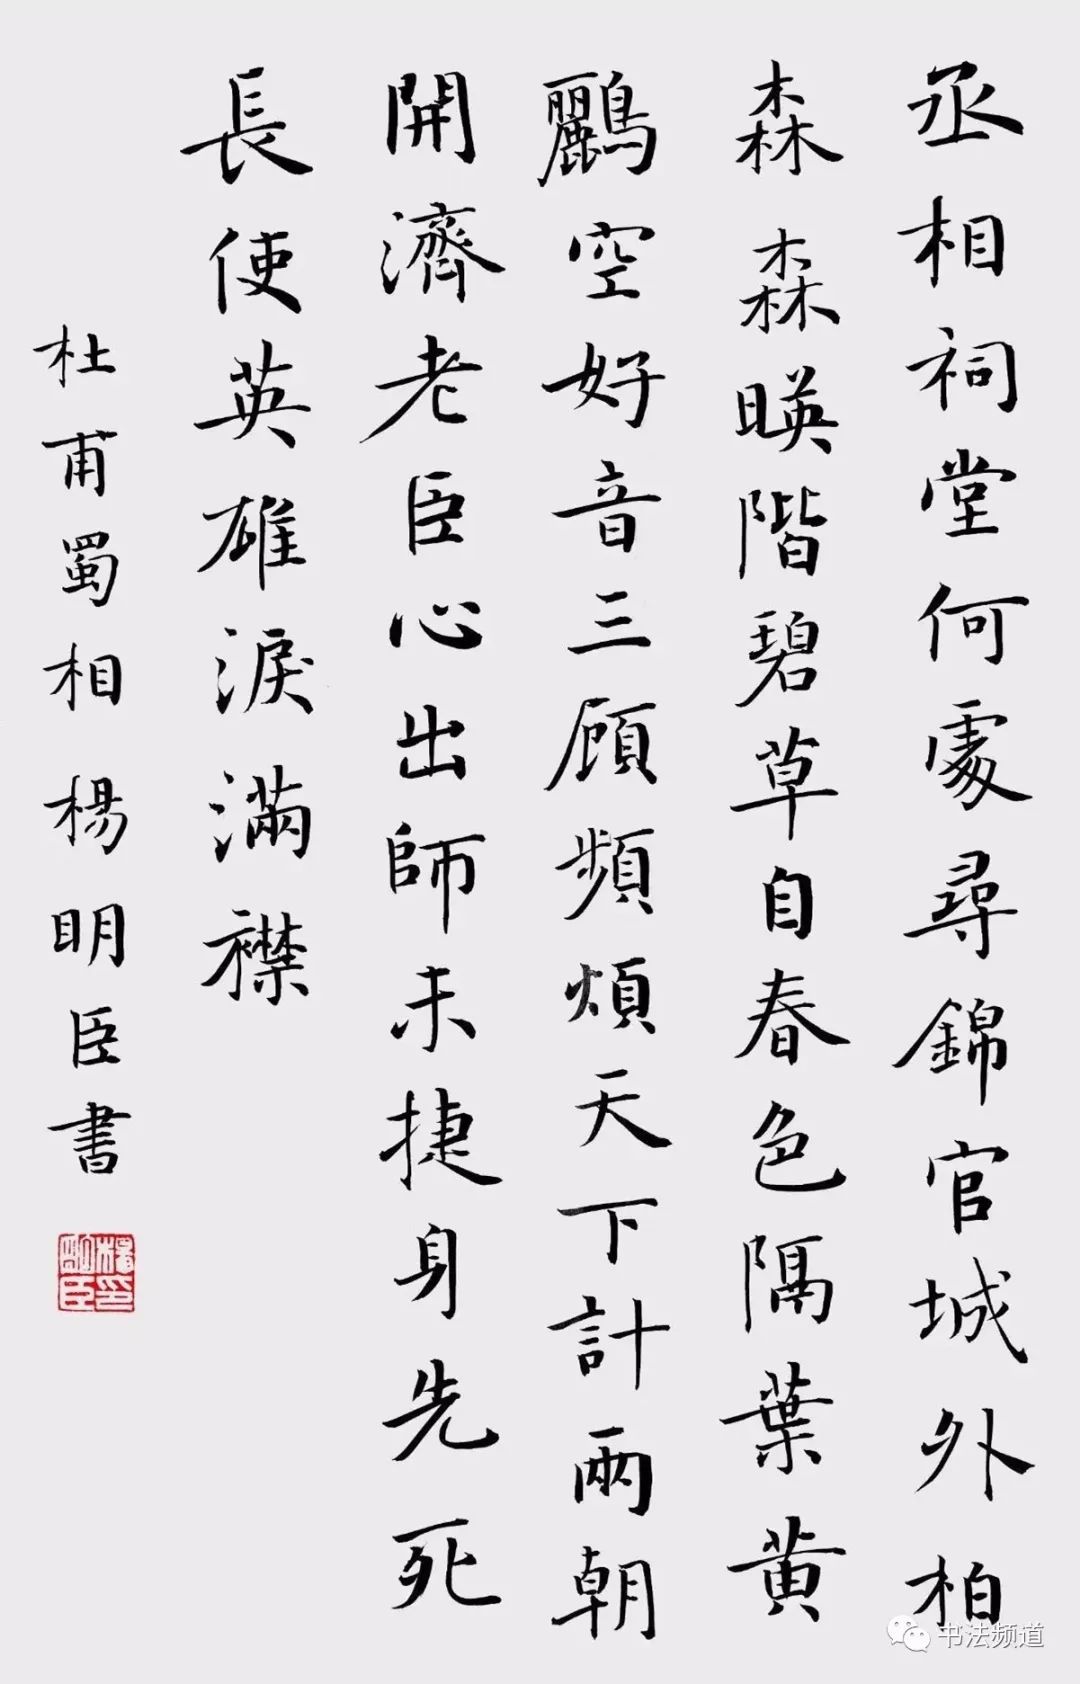 丞相祠堂何處尋錦官城外柏
森森暎階碧草自春色隔葉黄
鸝空好音三顧頻煩天下計兩朝
開濟老臣心出師未捷身先死
長使英雄淚滿襟
杜甫蜀相楊明臣書
楊明臣印
书法频道